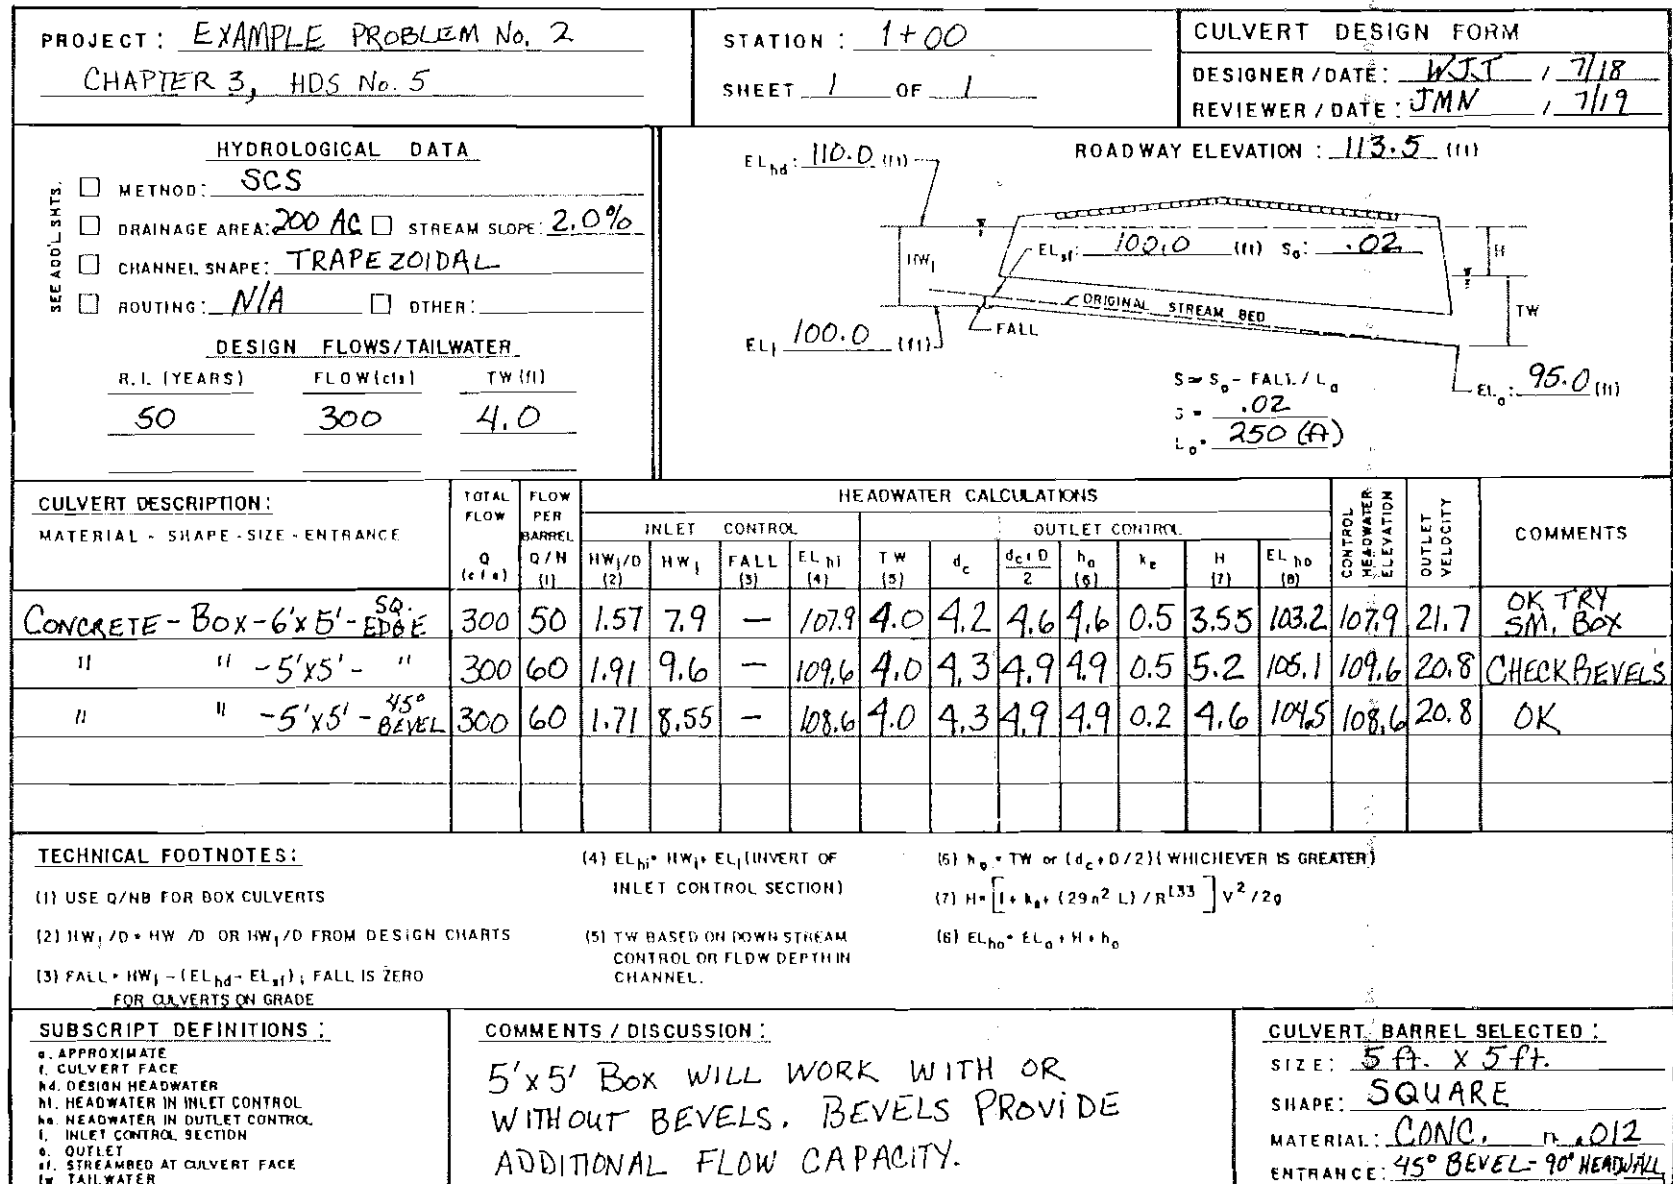 PROJECT: EXAMPLE PROBLEM No. 2
CHAPTER 3, HDS No. 5
STATION: 1+00
SHEET 1 OF 1
CULVERT DESIGN FORM
DESIGNER/DATE: WJT / 7/18
REVIEWER/DATE: JMN / 7/19
HYDROLOGICAL DATA
SEE ADD'L SHTS.
METHOD: SCS
DRAINAGE AREA: 200 AC STREAM SLOPE: 2.0%
CHANNEL SHAPE: TRAPEZOIDAL
ROUTING: N/A OTHER:
DESIGN FLOWS/TAILWATER
R.I. (YEARS) FLOW (cfs) TW (ft)
50 300 4.0
ELhd: 110.0 (ft)
ROADWAY ELEVATION: 113.5 (ft)
ELsf: 100.0 (ft) So: .02
HWi
H
TW
ORIGINAL STREAM BED
FALL
ELi 100.0 (ft)
S ≈ So - FALL / La
S = .02
La = 250 (ft)
ELo: 95.0 (ft)
CULVERT DESCRIPTION:
MATERIAL - SHAPE - SIZE - ENTRANCE
TOTAL FLOW Q (cfs)
FLOW PER BARREL Q/N (1)
HEADWATER CALCULATIONS
INLET CONTROL
OUTLET CONTROL
HWi/D (2) HWi FALL (3) ELhi (4) TW (5) dc dc+D/2 ho (6) ke H (7) ELho (8)
CONTROL HEADWATER ELEVATION
OUTLET VELOCITY
COMMENTS
CONCRETE - BOX - 6'x5' - SQ. EDGE 300 50 1.57 7.9 — 107.9 4.0 4.2 4.6 4.6 0.5 3.55 103.2 107.9 21.7 OK TRY SM. BOX
" " - 5'x5' - " 300 60 1.91 9.6 — 109.6 4.0 4.3 4.9 4.9 0.5 5.2 105.1 109.6 20.8 CHECK BEVELS
" " - 5'x5' - 45° BEVEL 300 60 1.71 8.55 — 108.6 4.0 4.3 4.9 4.9 0.2 4.6 104.5 108.6 20.8 OK
TECHNICAL FOOTNOTES:
(1) USE Q/NB FOR BOX CULVERTS
(2) HWi/D = HW/D OR HWi/D FROM DESIGN CHARTS
(3) FALL = HWi - (ELhd - ELsf); FALL IS ZERO
FOR CULVERTS ON GRADE
(4) ELhi = HWi + ELi (INVERT OF
INLET CONTROL SECTION)
(5) TW BASED ON DOWN STREAM
CONTROL OR FLOW DEPTH IN
CHANNEL.
(6) ho = TW or (dc + D/2) (WHICHEVER IS GREATER)
(7) H = [1 + ke + (29n² L) / R^1.33] V²/2g
(8) ELho = ELo + H + ho
SUBSCRIPT DEFINITIONS:
a. APPROXIMATE
f. CULVERT FACE
hd. DESIGN HEADWATER
hi. HEADWATER IN INLET CONTROL
ho. HEADWATER IN OUTLET CONTROL
i. INLET CONTROL SECTION
o. OUTLET
sf. STREAMBED AT CULVERT FACE
tw. TAILWATER
COMMENTS / DISCUSSION:
5'x5' BOX WILL WORK WITH OR
WITHOUT BEVELS. BEVELS PROVIDE
ADDITIONAL FLOW CAPACITY.
CULVERT BARREL SELECTED:
SIZE: 5 ft. x 5 ft.
SHAPE: SQUARE
MATERIAL: CONC. n .012
ENTRANCE: 45° BEVEL - 90° HEADWALL